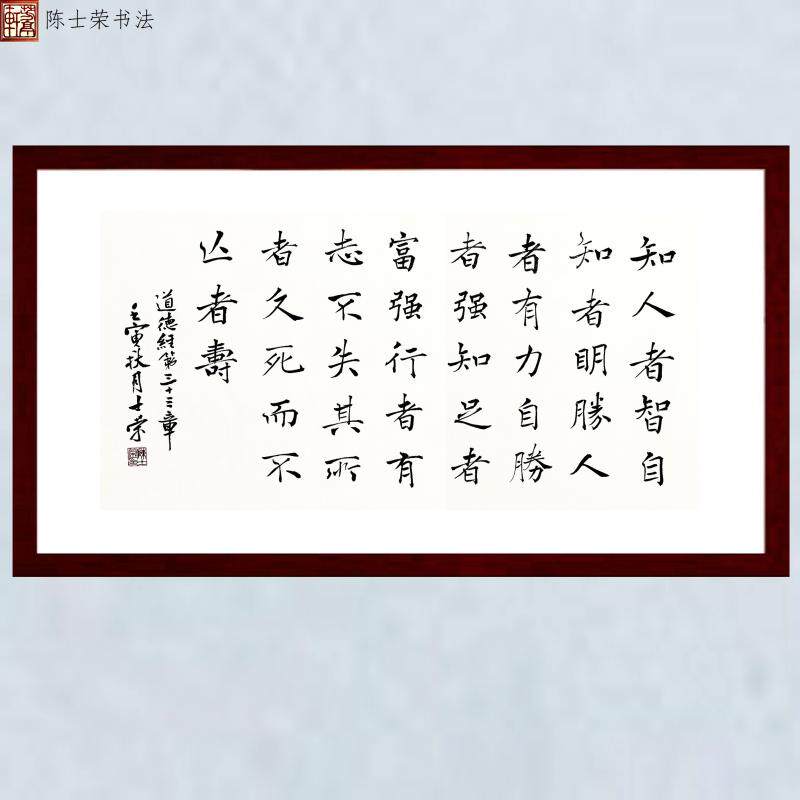 陈士荣书法
知人者智自
知者明勝人
者有力自勝
者强知足者
富强行者有
志不失其所
者久死而不
亾者壽
道德経第三十三章
壬寅秋月士荣